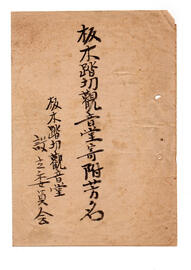 板木踏切觀音堂寄附芳名
板木踏切觀音堂
設立委員会